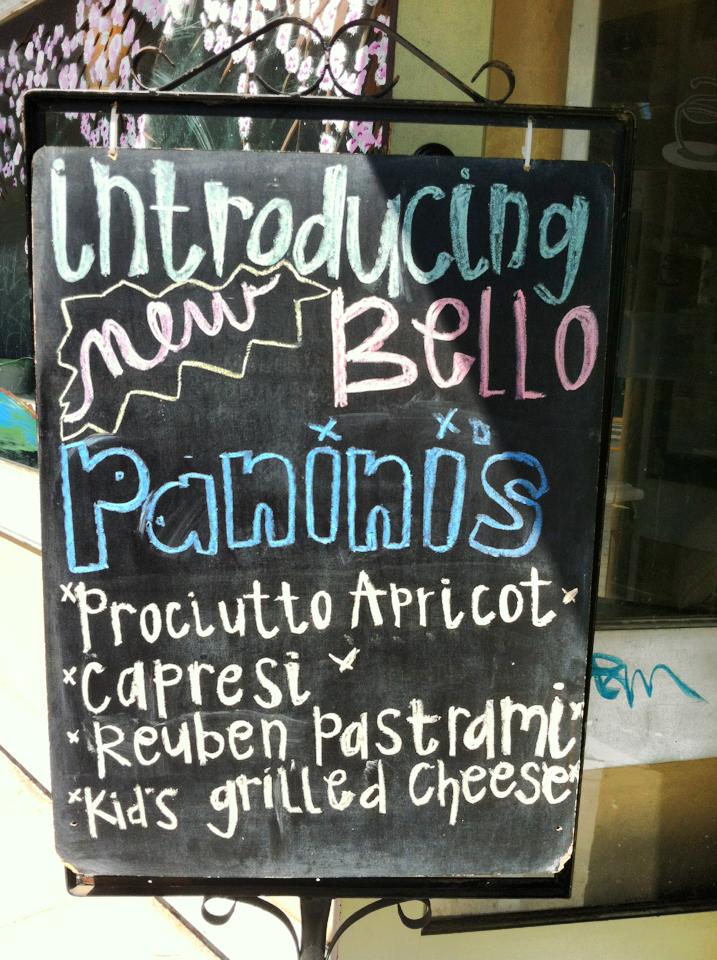 introducing
new Bello
Panini's
*Prociutto Apricot*
*Capresi*
*Reuben Pastrami*
*Kid's grilled Cheese*